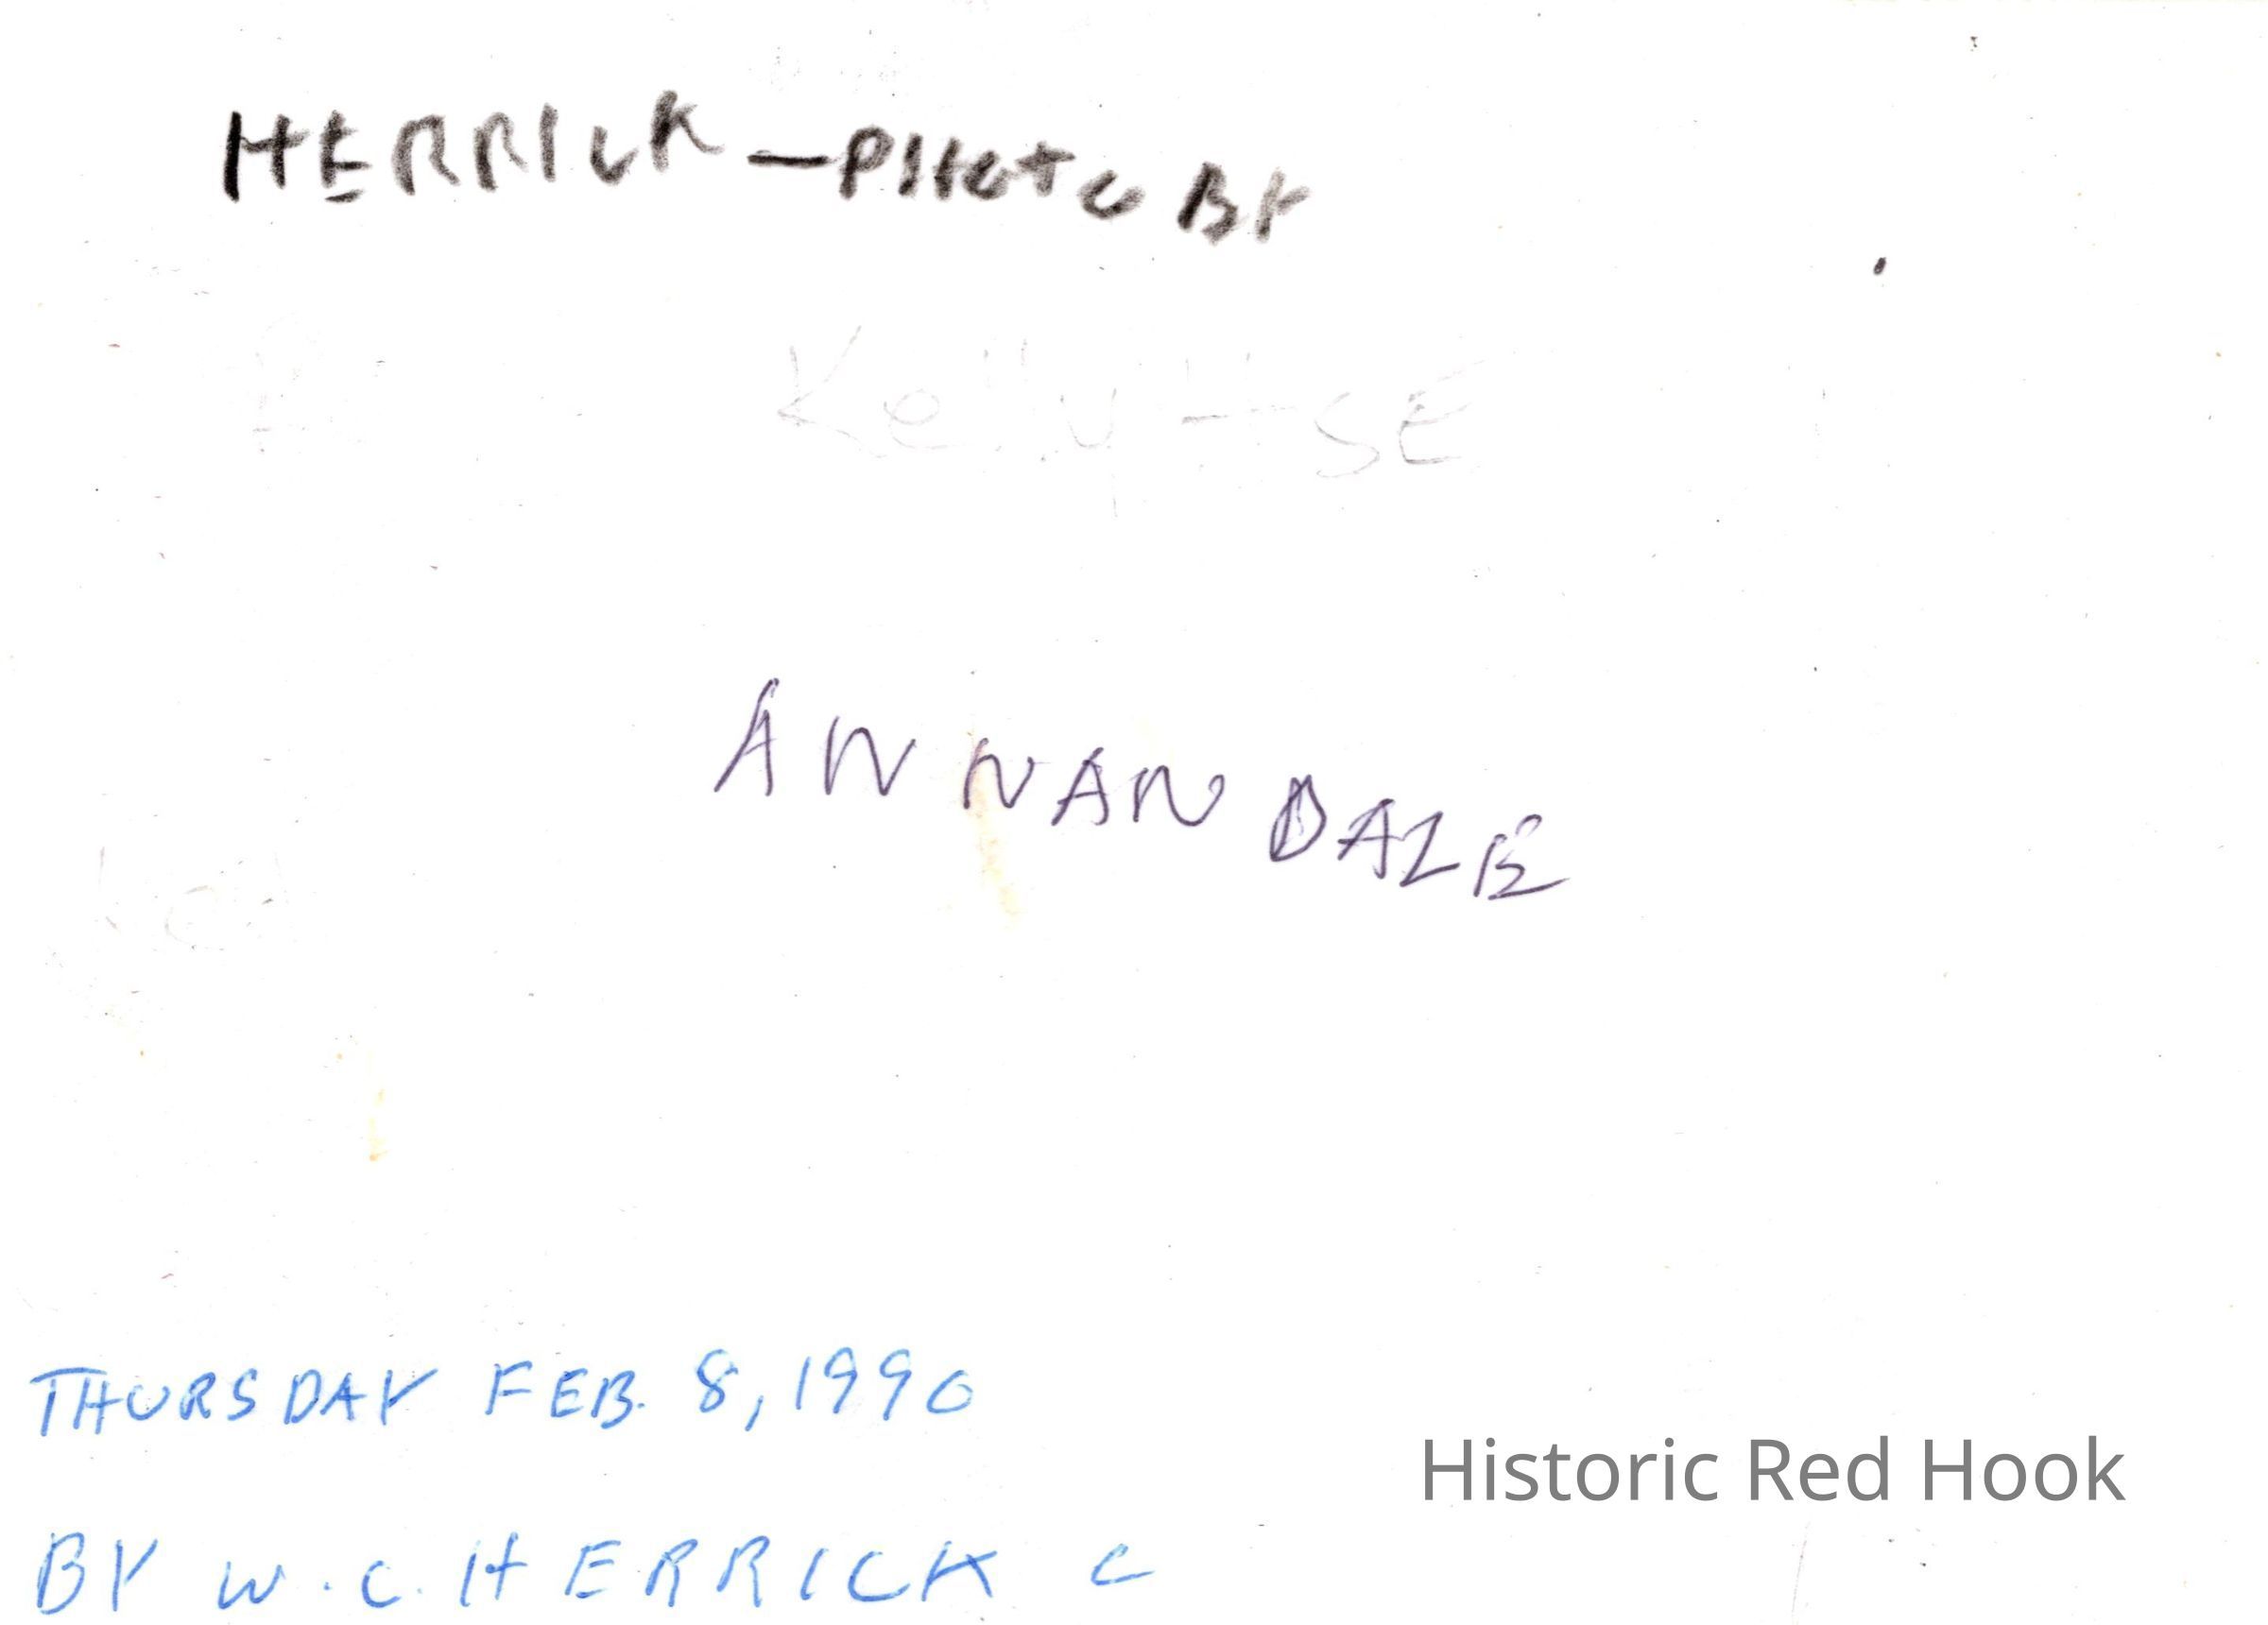 HERRICK — PHOTO BY
Kelly HSE
ANNANDALE
THURSDAY FEB. 8, 1990
Historic Red Hook
BY W. C. HERRICK C